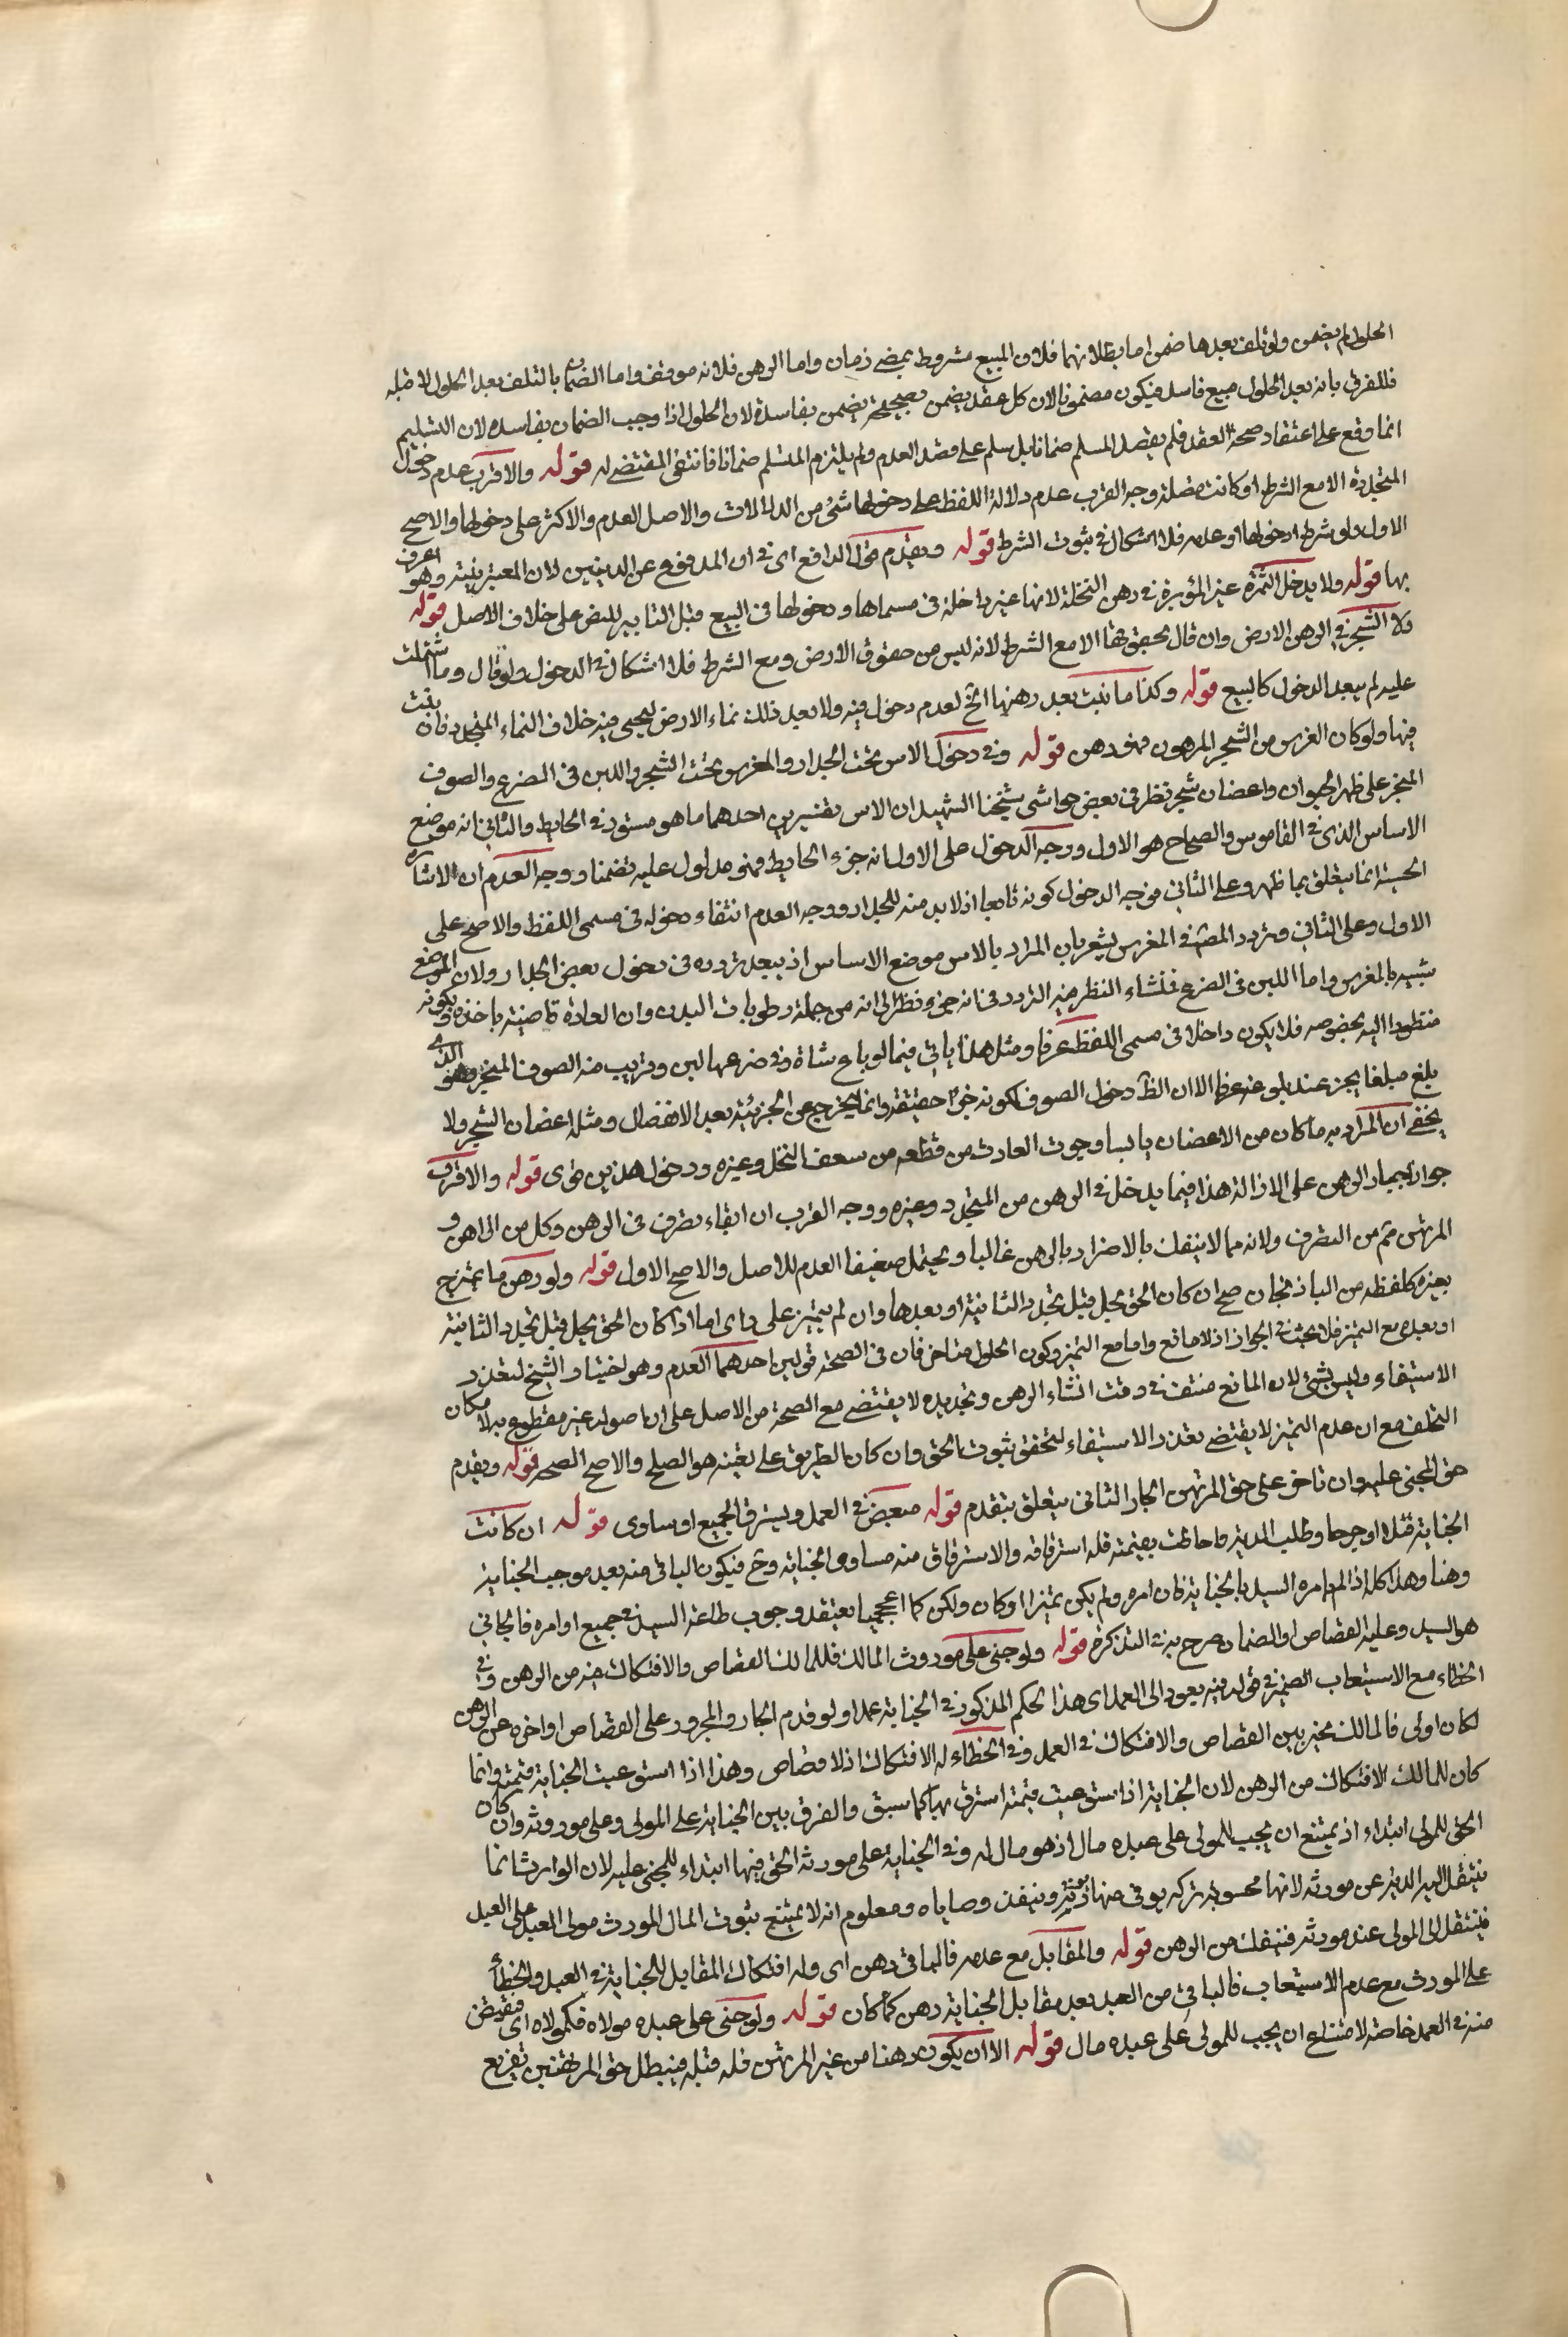 الحلول لم يضمن ولو تلف بعدها ضمن اما بطلانهما فلان المبيع مشروط بمضي زمان واما الرهن فلانه موقت واما الضمان بالتلف بعد الحلول لا قبله
فللفرق بانه بعد الحلول مبيع فاسد فيكون مضمونا لان كل عقد يضمن بصحيحه يضمن بفاسده لان الحلول اذا وجب الضمان بفاسده لان التسليم
انما وقع على اعتقاد صحة العقد فلم يقصد المسلم ضمانا بل سلم على قصد العدم ولم يلتزم المتسلم ضمانا فانتفى المقتضي له قوله والاقرب عدم دخول
المتجددة الا مع الشرط او كانت متصلة وجه القرب عدم دلالة اللفظ على دخولها شئ من الدلالات والاصل العدم والاكثر على دخولها والاصح
الاول ولو شرط دخولها او عدمه فلا اشكال في ثبوت الشرط قوله ويقدم قول الدافع اي في ان المدفوع عن الدينين لان المعتبر نيته وهو اعرف
بها قوله ولا يدخل الثمرة غير المؤبرة في رهن النخلة لانها غير داخلة في مسماها ودخولها في البيع قبل التابير للنص على خلاف الاصل قوله
ولا الشجر في الرهن الارض وان قال بحقوقها الا مع الشرط لانه ليس من حقوق الارض ومع الشرط فلا اشكال في الدخول ولو قال وما اشتملت
عليه لم يبعد الدخول كالبيع قوله وكذا ما نبت بعد رهنها الخ لعدم دخوله فيه ولا يعد ذلك نماء الارض ليجئ فيه خلاف النماء المتجدد فان ينبت
فيها ولو كان الغرس من الشجر المرهون فهو رهن قوله وفي دخول الاس تحت الجدار والمغرس تحت الشجر واللبن في الضرع والصوف
المجز على ظهر الحيوان واغصان شجر نظر في بعض حواشي شيخنا الشهيد ان الاس بتفسيرين احدهما ما هو مستور في الحايط والثاني انه موضع
الاساس الذي في القاموس والصحاح هو الاول ووجه الدخول على الاول انه جزء الحايط فهو مدلول عليه تضمنا ووجه العدم ان الاشارة
الحسية انما يتعلق بما ظهر وعلى الثاني فوجه الدخول كونه تابعا اذ لا بد منه للجدار ووجه العدم انتفاء دخوله في مسمى اللفظ والاصح على
الاول وعلى الثاني وتردد المصنف في المغرس يشعر بان المراد بالاس موضع الاساس اذ يبعد تردده في دخول بعض الجدار ولان الموضع
شبيه بالمغرس واما اللبن في الضرع فمنشاء النظر فيه التردد في انه جزء نظرا الى انه من جملة رطوبات البدن وان العادة قاضية باخذه وكونه
منظورا اليه بخصوصه فلا يكون داخلا في مسمى اللفظ عرفا ومثل هذا ياتي فيما لو باع شاة وفي ضرعها لبن وقريب منه الصوف المجز وهو الذي
بلغ مبلغا يجز عند بلوغه عرفا الا ان الظ دخول الصوف لكونه جزءا حقيقة وانما يخرج عن الجزئية بعد الانفصال ومثله اغصان الشجر ولا
يخفى ان المراد به ما كان من الاغصان يابسا وجرت العادت من قطعه من سعف النخل وغيره ودخول هذين قوى قوله والاقرب
جواز اجبار الرهن على الازالة هذا فيما يدخل في الرهن من المتجدد وغيره ووجه القرب ان ابقاء تصرف في الرهن وكل من الراهن و
المرتهن منع من التصرف ولانه مما لا ينفك بالاضرار بالرهن غالبا ويحتمل ضعيفا العدم للاصل والاصح الاول قوله ولو رهن ما يمتزج
بغيره كلقطة من الباذنجان صح ان كان الحق يحل قبل تجدد الثانية او بعدها وان لم يتميز على راى اما اذا كان الحق يحل قبل تجدد الثانية
او بعده مع التميز فلا بحث في الجواز اذ لا مانع واما مع التميز وكون الحلول متاخر فان في الصحة قولين احدهما العدم وهو اختيار الشيخ لتعذر
الاستيفاء وليس بشئ لان المانع منتف في وقت انشاء الرهن وتجديده لا يقتضي مع الصحة من الاصل على ان حصوله غير مقطوع به لامكان
التخلف مع ان عدم التميز لا يقتضي تعذر الاستيفاء لتحقق ثبوت الحق وان كان الطريق على تعينه هو الصلح والاصح الصحة قوله ويقدم
حق المجنى عليه وان تاخر على حق المرتهن الجار الثاني يتعلق بيقدم قوله متعوض في العمد ويسترق الجميع او ساوى قوله ان كانت
الجناية قتلا او جرحا وطلب الدية واحاطت بقيمته فله استرقاقه والاسترقاق منه مساوى الجناية وح فيكون الباقي منه بعد موجب الجناية
وهنا وهذا كله اذا لم يامره السيد بالجناية فان امره ولم يكن مميزا او كان ولكن كان اعجميا يعتقد وجوب طاعة السيد في جميع اوامره فالجاني
هو السيد وعليه القصاص او الضمان صرح به في التذكرة قوله ولو جنى على موروث المالك فللمالك القصاص والافتكاك منه من الرهن وفي
الخطاء مع الاستيعاب الضمير في قوله فيه يعود الى العمد اى هذا الحكم المذكور في الجناية عمدا ولو قدم الجار والمجرور على القصاص او اخره عن الرهن
لكان اولى فالمالك مخير بين القصاص والافتكاك في العمد وفي الخطاء له الافتكاك اذ لا قصاص وهذا اذا استوعبت الجناية قيمته وانما
كان للمالك الافتكاك من الرهن لان الجناية اذا استوعبت قيمته استرق بها كما سبق والفرق بين الجناية على المولى وعلى موروثه وان كان
الحق للمولى ابتداء اذ يمتنع ان يجب للمولى على عبده مال اذ هو مال له وفي الجناية على مورثه الحق فيها ابتداء للمجنى عليه لان الوارث انما
ينتقل اليه الدية عن مورثه لانها محسوبة تركه يوفى منها ديونه وينفذ وصاياه ومعلوم انه لا يمتنع ثبوت المال المورث مولى العبد على العبد
فينتقل الى المولى عند مورثه فينفك من الرهن قوله والمقابل مع عدمه فالباقي رهن اى وله افتكاك المقابل للجناية في العبد والخطأ
على المورث مع عدم الاستيعاب فالباقي من العبد بعد مقابل الجناية رهن كما كان قوله ولو جنى على عبده مولاه فكمولاه اى فيقتص
منه في العمد خاصة لامتناع ان يجب للمولى على عبده مال قوله الا ان يكون رهنا من غير المرتهن فله قتله فيبطل حق المرتهنين تفريع